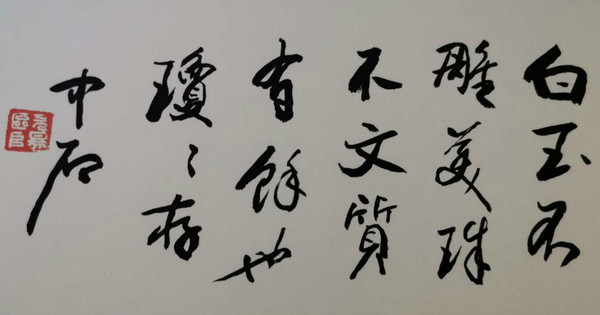 白玉不
雕美珠
不文質
有餘也
瓊〻存
中石